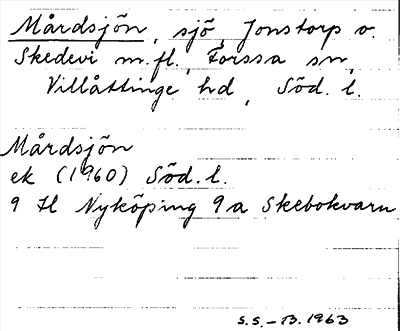 Mårdsjön, sjö, Jonstorp o.
Skedevi m.fl., Forssa sn,
Villåttinge hd, Söd. l.
Mårdsjön
ek (1960) Söd. l.
9 H Nyköping 9a Skebokvarn
S.S. – B. 1963